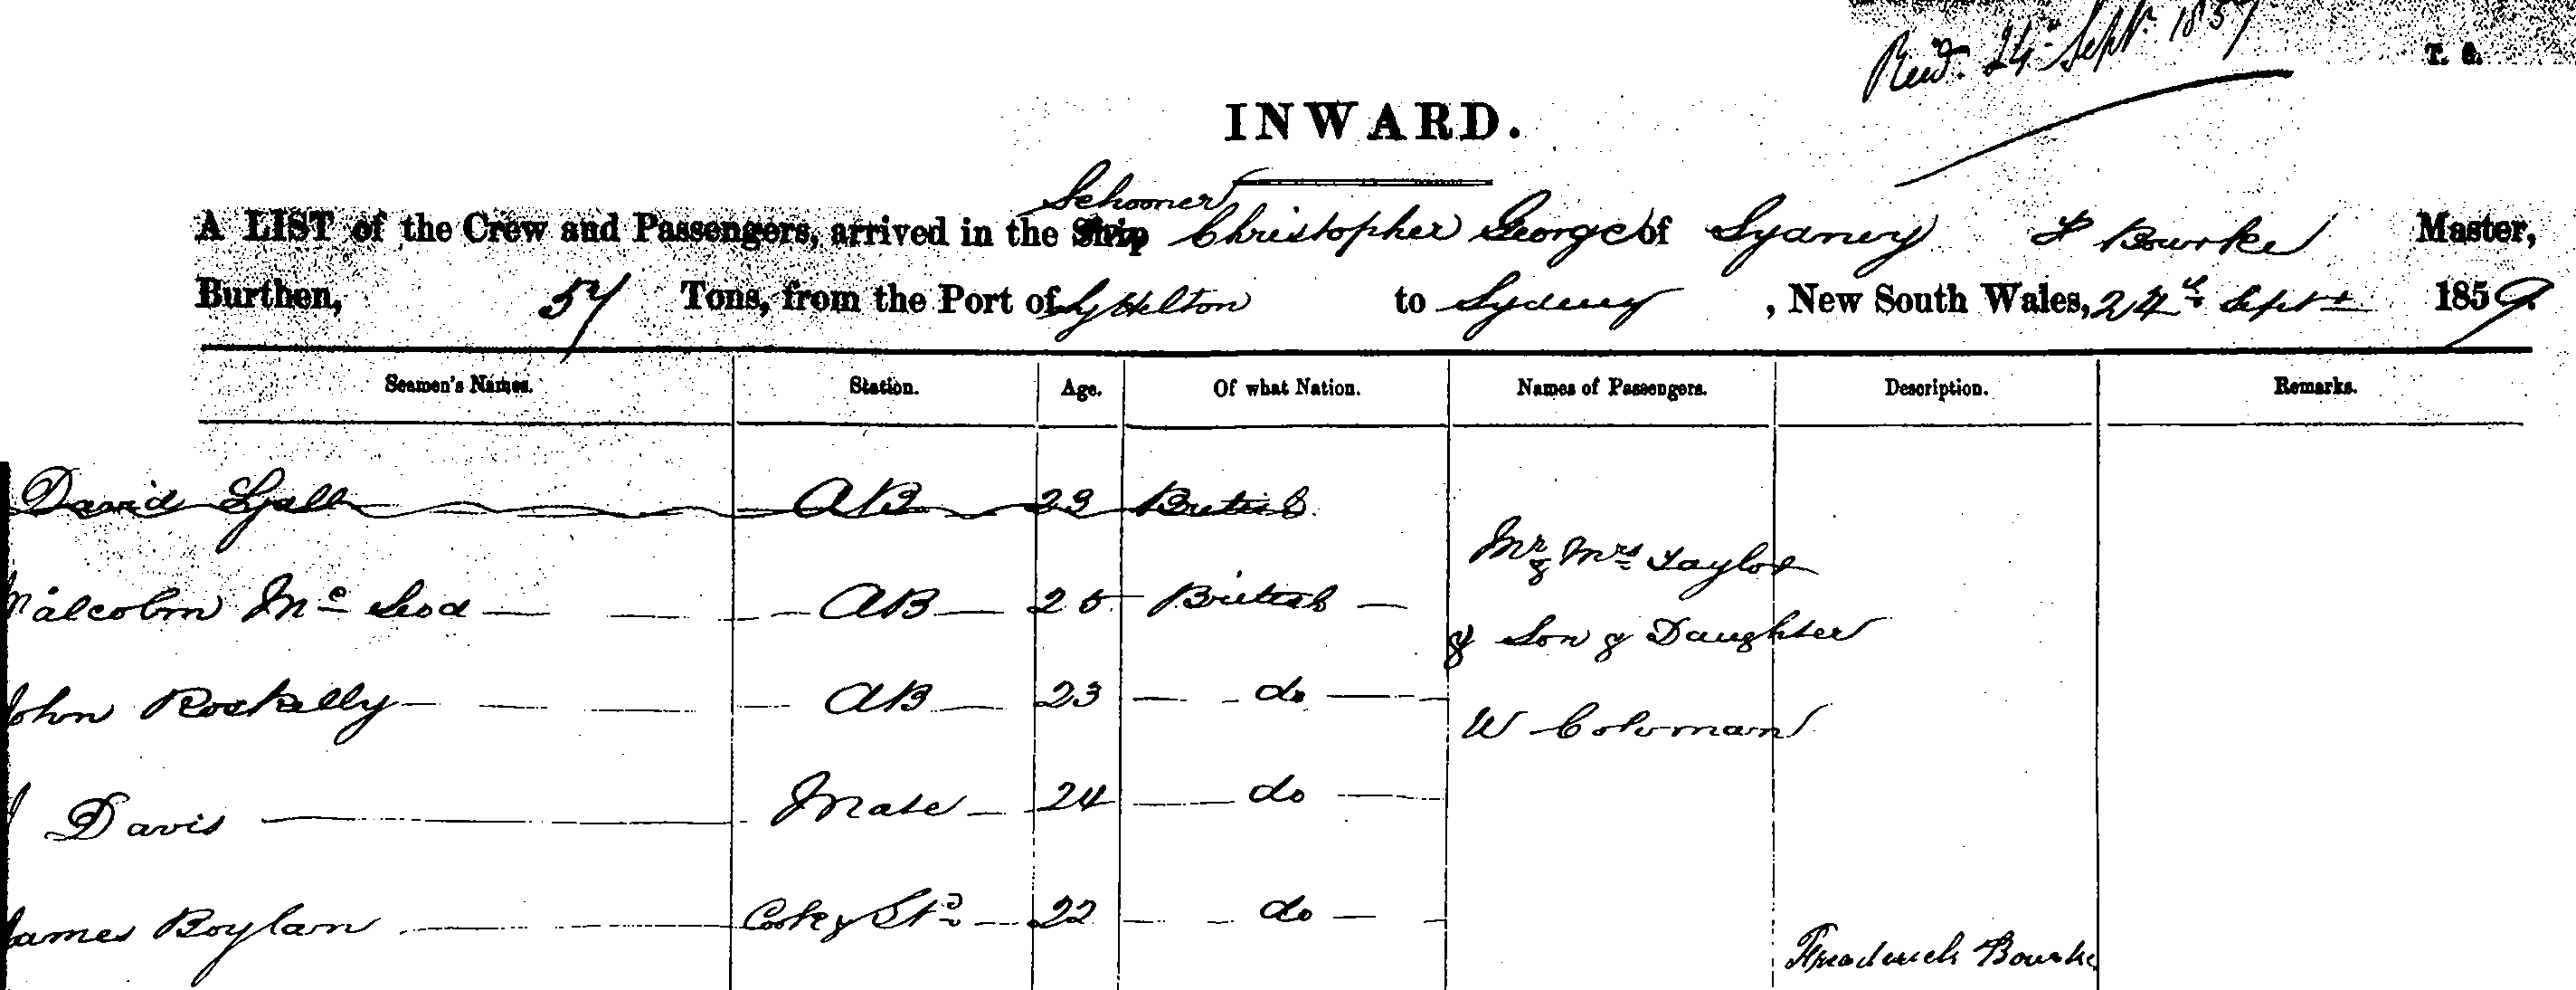 Recd. 24th Sept. 1859
T. G.
INWARD.
Schooner
A LIST of the Crew and Passengers, arrived in the Ship Christopher George of Sydney F Bourke Master,
Burthen, 57 Tons, from the Port of Lyttelton to Sydney, New South Wales, 24th Sept 1859.
Seamen's Names. Station. Age. Of what Nation. Names of Passengers. Description. Remarks.
David Lyall AB 23 British
Mr & Mrs Taylor
Malcolm Mc Leod AB 25 British
& Son & Daughter
John Rockelly AB 23 do
W Coleman
Davis Mate 24 do
James Boylan Cook & Std 22 do
Frederick Bourke